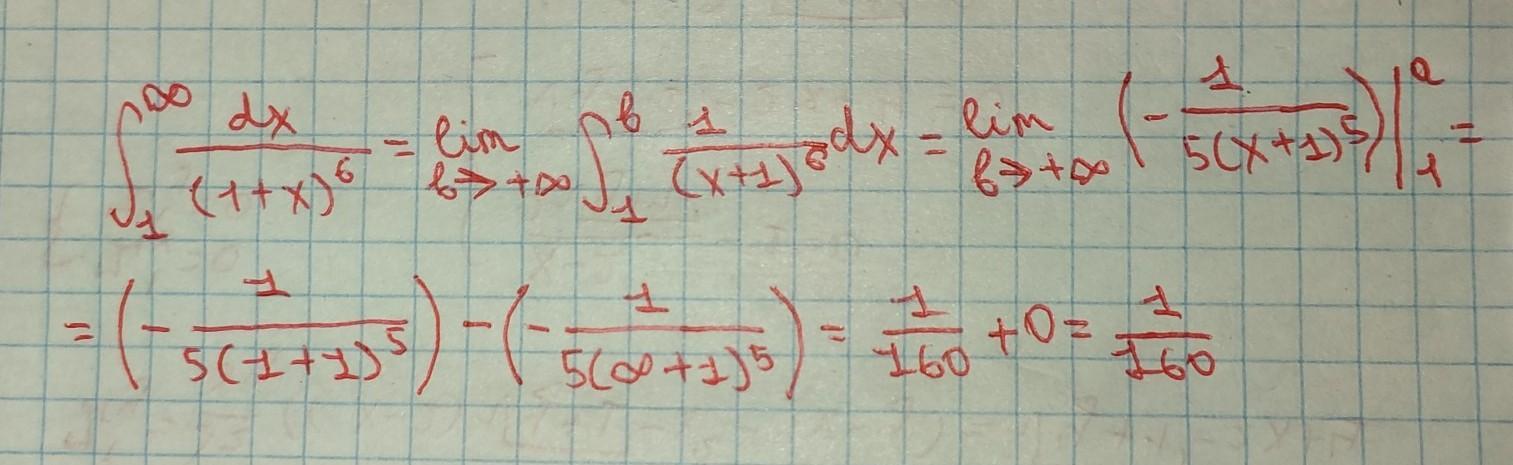 ∫₁^∞ dx/(1+x)⁶ = lim_{b→+∞} ∫₁^b 1/(x+1)⁶ dx = lim_{b→+∞} (-1/(5(x+1)⁵))|₁^a =
= (-1/(5(1+1)⁵)) - (-1/(5(∞+1)⁵)) = 1/160 + 0 = 1/160